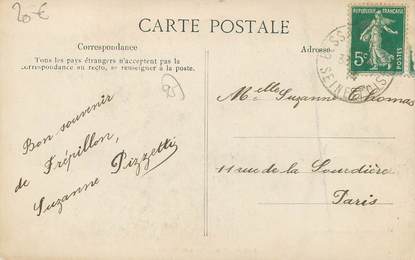 20 €
CARTE POSTALE
Correspondance
Tous les pays étrangers n'acceptent pas la
correspondance au recto, se renseigner à la poste.
Adresse
RÉPUBLIQUE FRANÇAISE
5c
POSTES
95
Bon souvenir
de Frépillon,
Suzanne Pizzetti
Melle Suzanne Thomas
11 rue de la Sourdière
Paris